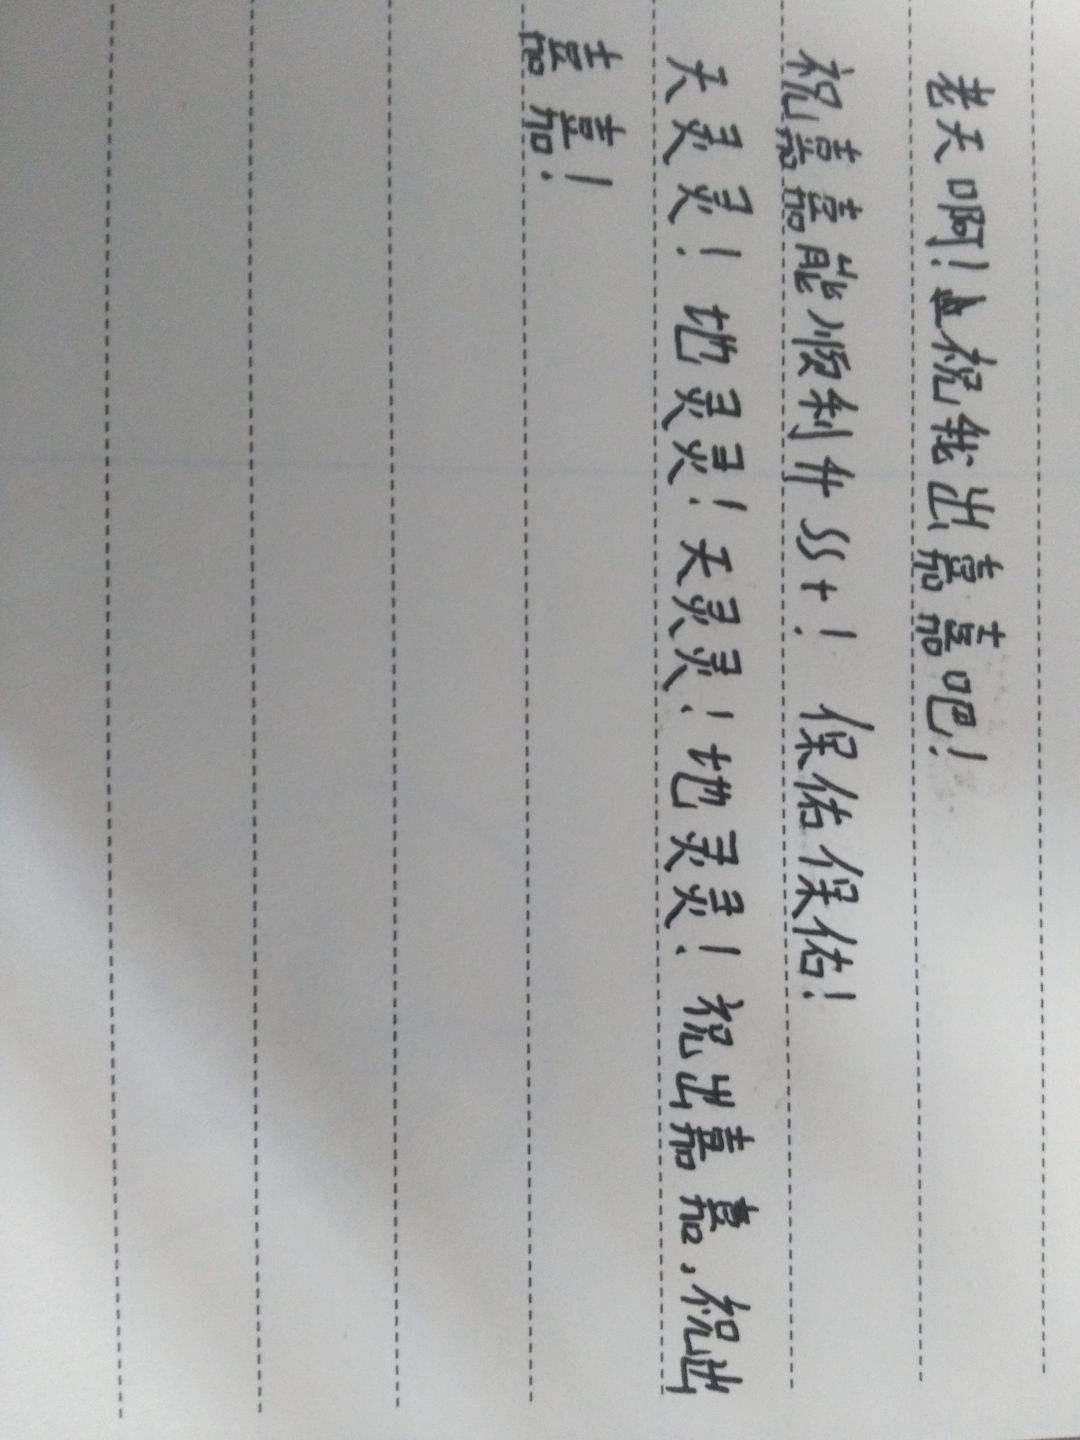 老天啊!祝我出嘉嘉吧!
祝嘉嘉能顺利升SS+! 保佑保佑!
天灵灵!地灵灵!天灵灵!地灵灵!祝出嘉嘉,祝出
嘉嘉!